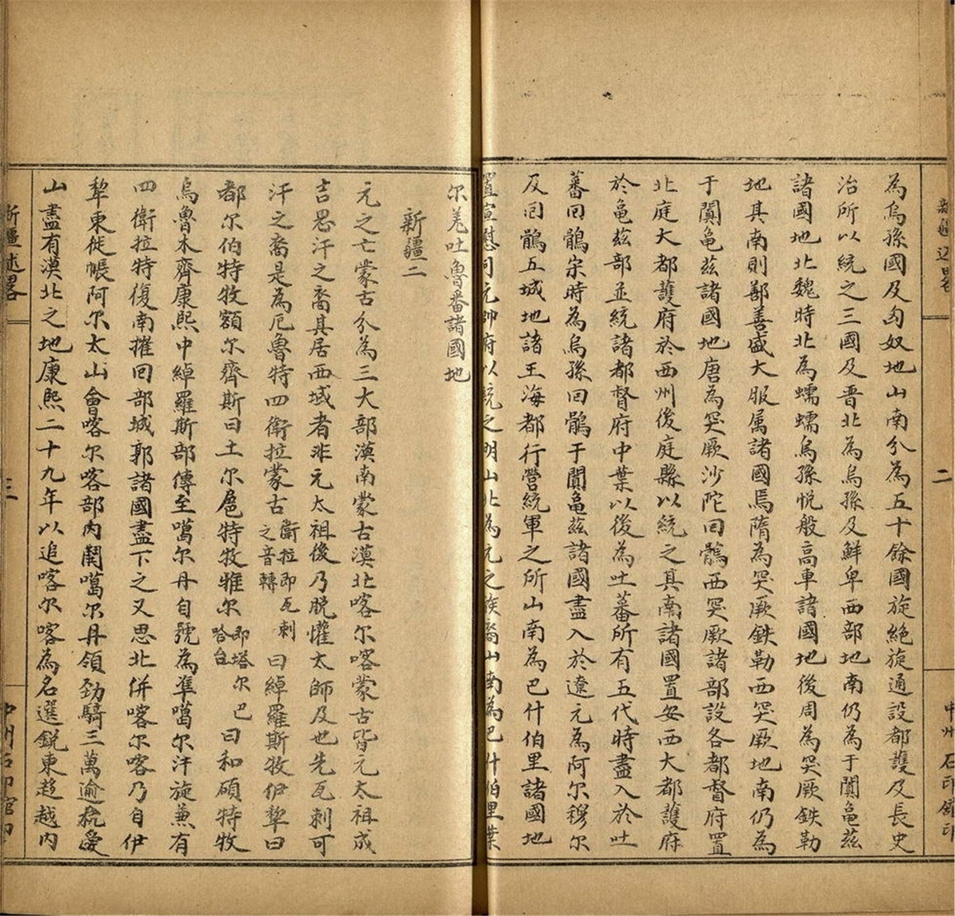 新疆述畧
二
中州石印館印
為烏孫國及匈奴地山南分為五十餘國旋絕旋通設都護及長史
治所以統之三國及晋北為烏孫及鮮卑西部地南仍為于闐龜茲
諸國地北魏時北為蠕蠕烏孫悅般高車諸國地後周為突厥鉄勒
地其南則鄯善盛大服属諸國焉隋為突厥鉄勒西突厥地南仍為
于闐龜茲諸國地唐為突厥沙陀回鶻西突厥諸部設各都督府置
北庭大都護府於西州後庭縣以統之其南諸國置安西大都護府
於龜茲部並統諸都督府中葉以後為吐蕃所有五代時盡入於吐
蕃回鶻宋時為烏孫回鶻于闐龜茲諸國盡入於遼元為阿尔穆尔
及回鶻五城地諸王海都行營統軍之所山南為巴什伯里諸國地
置宣慰司元帅府以統之明山北為元之族裔山南為巴什伯里葉
尔羌吐魯番諸國地
新疆二
元之亡蒙古分為三大部漠南蒙古漠北喀尔喀蒙古皆元太祖成
吉思汗之裔其居西域者非元太祖後乃脫懽太師及也先瓦剌可
汗之裔是為厄魯特四衛拉蒙古衛拉即瓦剌之音轉曰綽羅斯牧伊犂曰
都尔伯特牧額尔齊斯曰土尔扈特牧雅尔即塔尔巴哈台曰和碩特牧
烏魯木齊康熙中綽羅斯部傳至噶尔丹自號為準噶尔汗旋兼有
四衛拉特復南摧回部城郭諸國盡下之又思北併喀尔喀乃自伊
犂東徙帳阿尔太山會喀尔喀部內鬨噶尔丹領勁騎三萬逾杭愛
山盡有漠北之地康熙二十九年以追喀尔喀為名選銳東趍越內
新疆述畧
三
中州石印館印